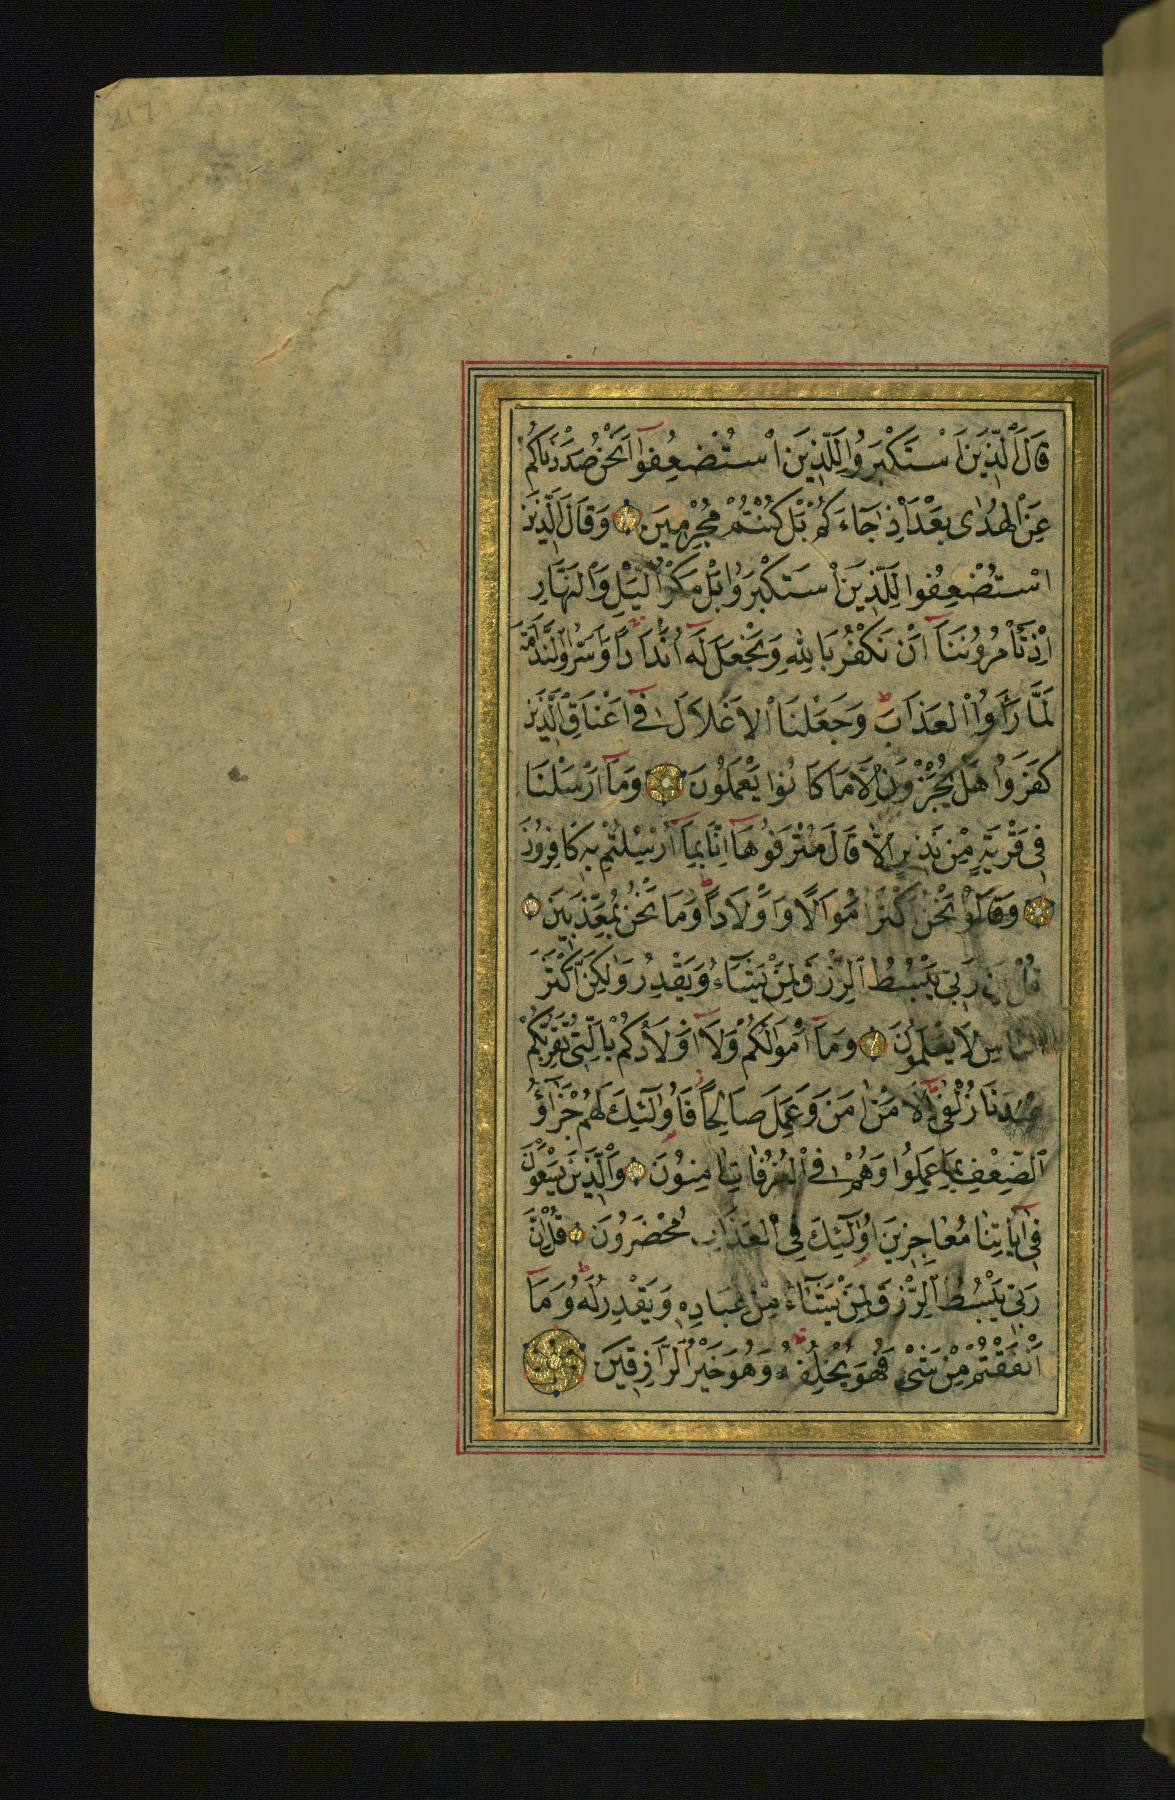 217
قَالَ الَّذِينَ اسْتَكْبَرُوا لِلَّذِينَ اسْتُضْعِفُوا أَنَحْنُ صَدَدْنَاكُمْ
عَنِ الْهُدٰى بَعْدَ إِذْ جَاءَكُمْ بَلْ كُنْتُمْ مُجْرِمِينَ وَقَالَ الَّذِينَ
اسْتُضْعِفُوا لِلَّذِينَ اسْتَكْبَرُوا بَلْ مَكْرُ الَّيْلِ وَالنَّهَارِ
إِذْ تَأْمُرُونَنَا أَنْ نَكْفُرَ بِاللّٰهِ وَنَجْعَلَ لَهُ أَنْدَادًا وَأَسَرُّوا النَّدَامَةَ
لَمَّا رَأَوُا الْعَذَابَ وَجَعَلْنَا الْأَغْلَالَ فِي أَعْنَاقِ الَّذِينَ
كَفَرُوا هَلْ يُجْزَوْنَ إِلَّا مَا كَانُوا يَعْمَلُونَ وَمَا أَرْسَلْنَا
فِي قَرْيَةٍ مِنْ نَذِيرٍ إِلَّا قَالَ مُتْرَفُوهَا إِنَّا بِمَا أُرْسِلْتُمْ بِهِ كَافِرُونَ
وَقَالُوا نَحْنُ أَكْثَرُ أَمْوَالًا وَأَوْلَادًا وَمَا نَحْنُ بِمُعَذَّبِينَ
قُلْ إِنَّ رَبِّي يَبْسُطُ الرِّزْقَ لِمَنْ يَشَاءُ وَيَقْدِرُ وَلٰكِنَّ أَكْثَرَ
النَّاسِ لَا يَعْلَمُونَ وَمَا أَمْوَالُكُمْ وَلَا أَوْلَادُكُمْ بِالَّتِي تُقَرِّبُكُمْ
عِنْدَنَا زُلْفٰى إِلَّا مَنْ اٰمَنَ وَعَمِلَ صَالِحًا فَأُولٰئِكَ لَهُمْ جَزَاؤُ
الضِّعْفِ بِمَا عَمِلُوا وَهُمْ فِي الْغُرُفَاتِ اٰمِنُونَ وَالَّذِينَ يَسْعَوْنَ
فِي اٰيَاتِنَا مُعَاجِزِينَ أُولٰئِكَ فِي الْعَذَابِ مُحْضَرُونَ قُلْ إِنَّ
رَبِّي يَبْسُطُ الرِّزْقَ لِمَنْ يَشَاءُ مِنْ عِبَادِهِ وَيَقْدِرُ لَهُ وَمَا
أَنْفَقْتُمْ مِنْ شَيْءٍ فَهُوَ يُخْلِفُهُ وَهُوَ خَيْرُ الرَّازِقِينَ